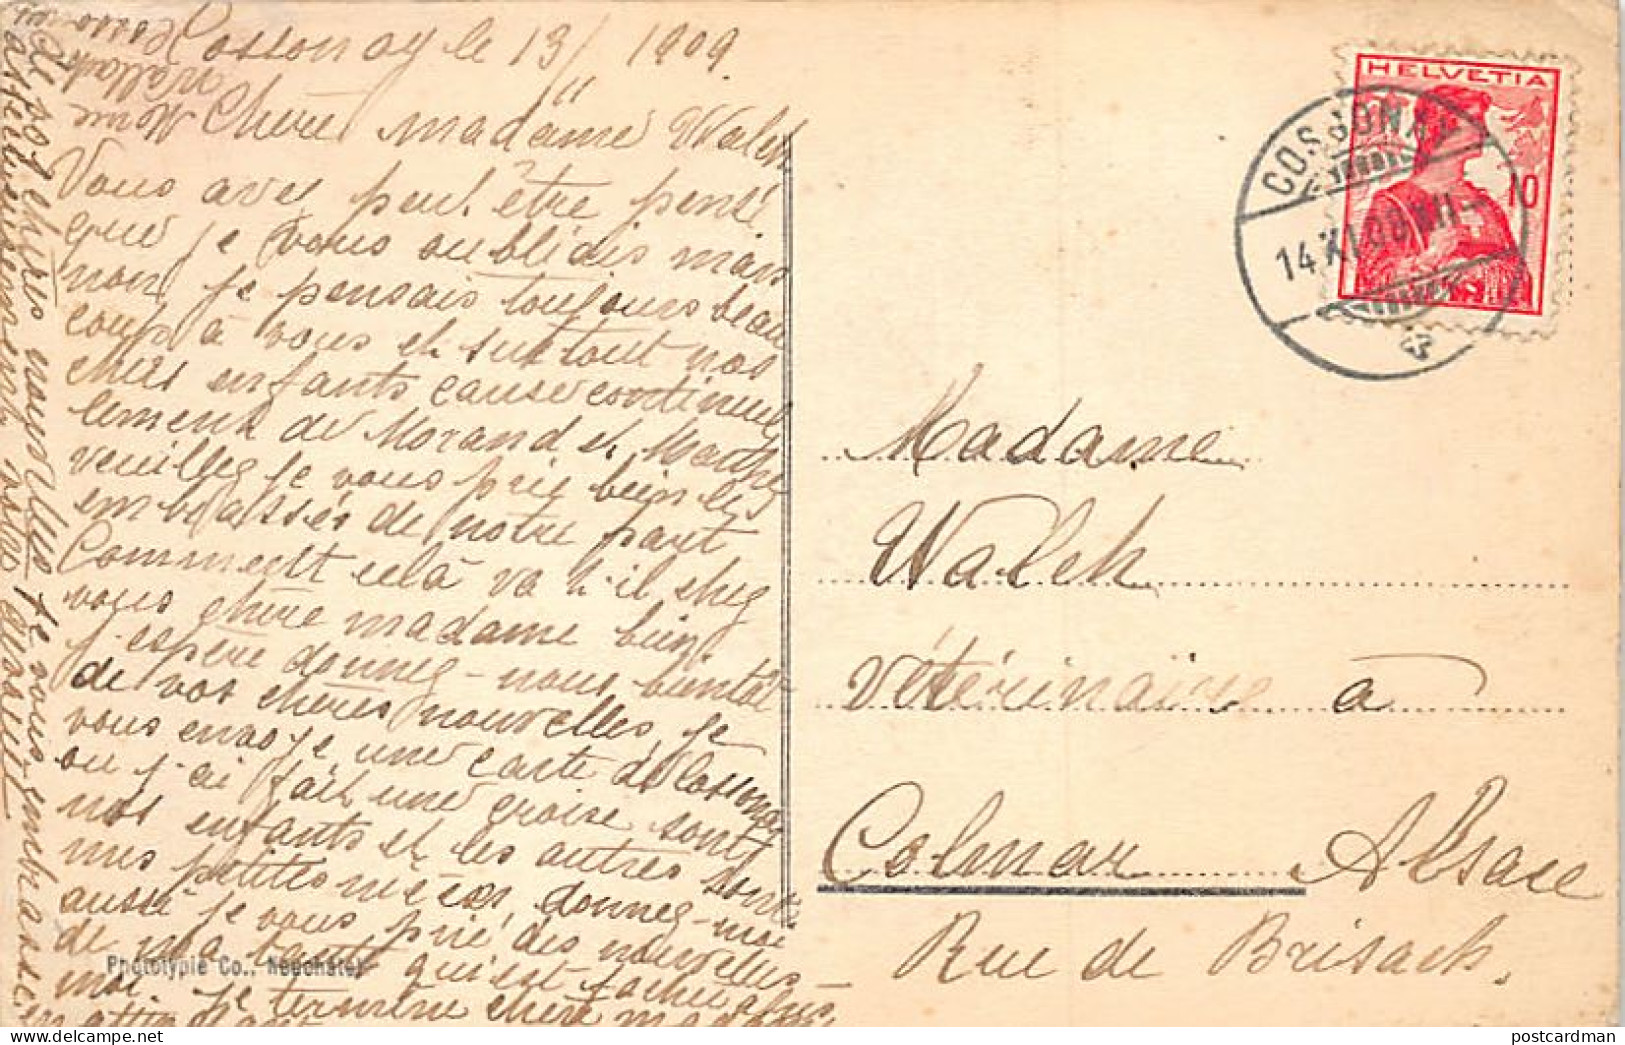 Cossonay le 13/ 1909.
11
Chère madame Walch
Vous avez peut être pensé
que je vous oubliais mais
non je pensais toujours beau
coup à vous et surtout nos
chers enfants cause continuel
lement de Morand et Marthe
veuillez je vous prie bien les
embrassés de notre part
Comment celà va t'il chez
vous chère madame bien
j'espère donnez-nous bientôt
de vos chères nouvelles je
vous envoye une carte de Cossonay
ou j'ai fait une croise sont
nos enfants et les autres sont
mes petites nièces donnez-moi
aussi je vous prie des nouvelles
de ma tante qu'est fachée
moi je termine chère madame
en attendant
de vos chères nouvelles je vous embrasse
Mme Wallach
Cossonay
HELVETIA
10
COSSONAY
14 XI 09 VII-
Madame
Walch
Vétérinaire à
Colmar Alsace
Rue de Brisach.
Phototypie Co., Neuchâtel
postcardman